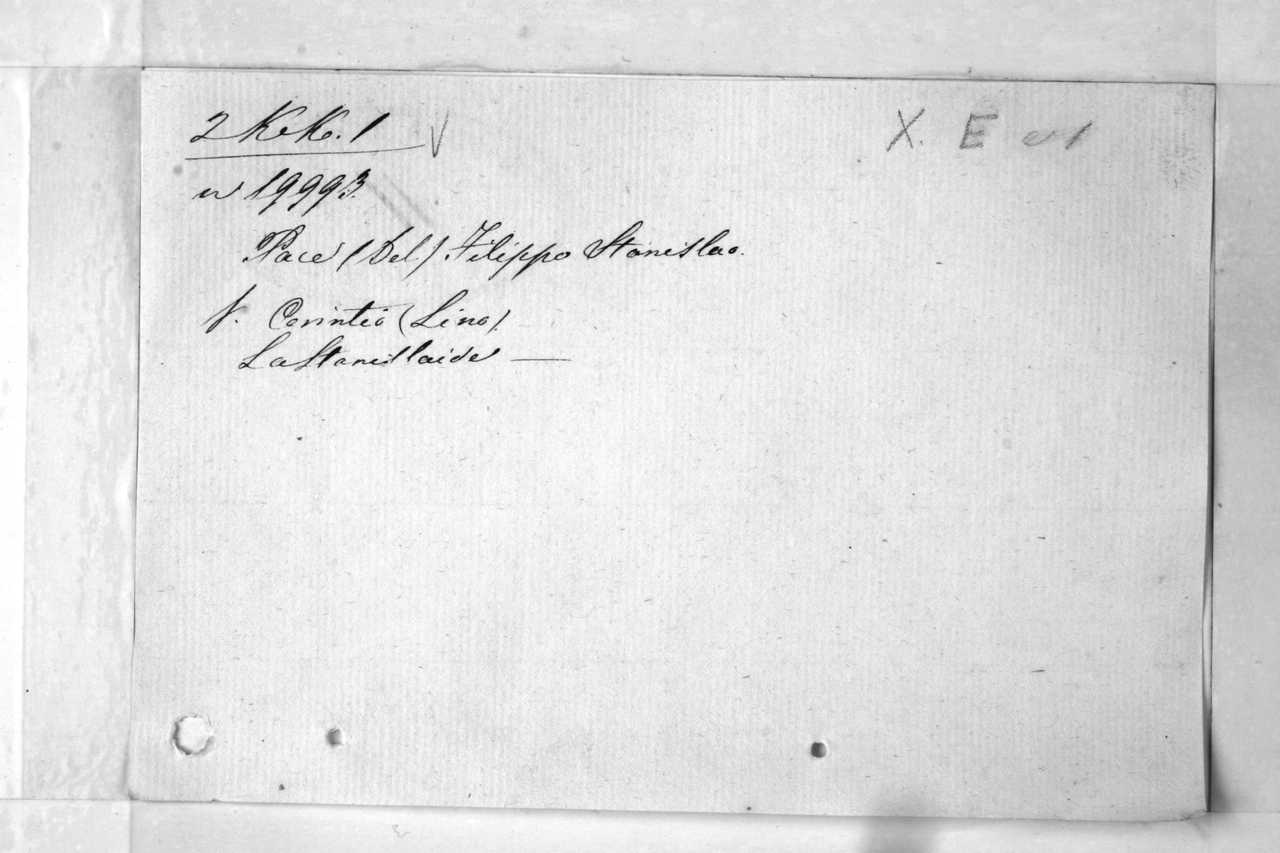 2 KK. 1 V
X. E
19993.
Pace (Del) Filippo Stanislao.
f. Corintio (Lino).
La Stanislaide —